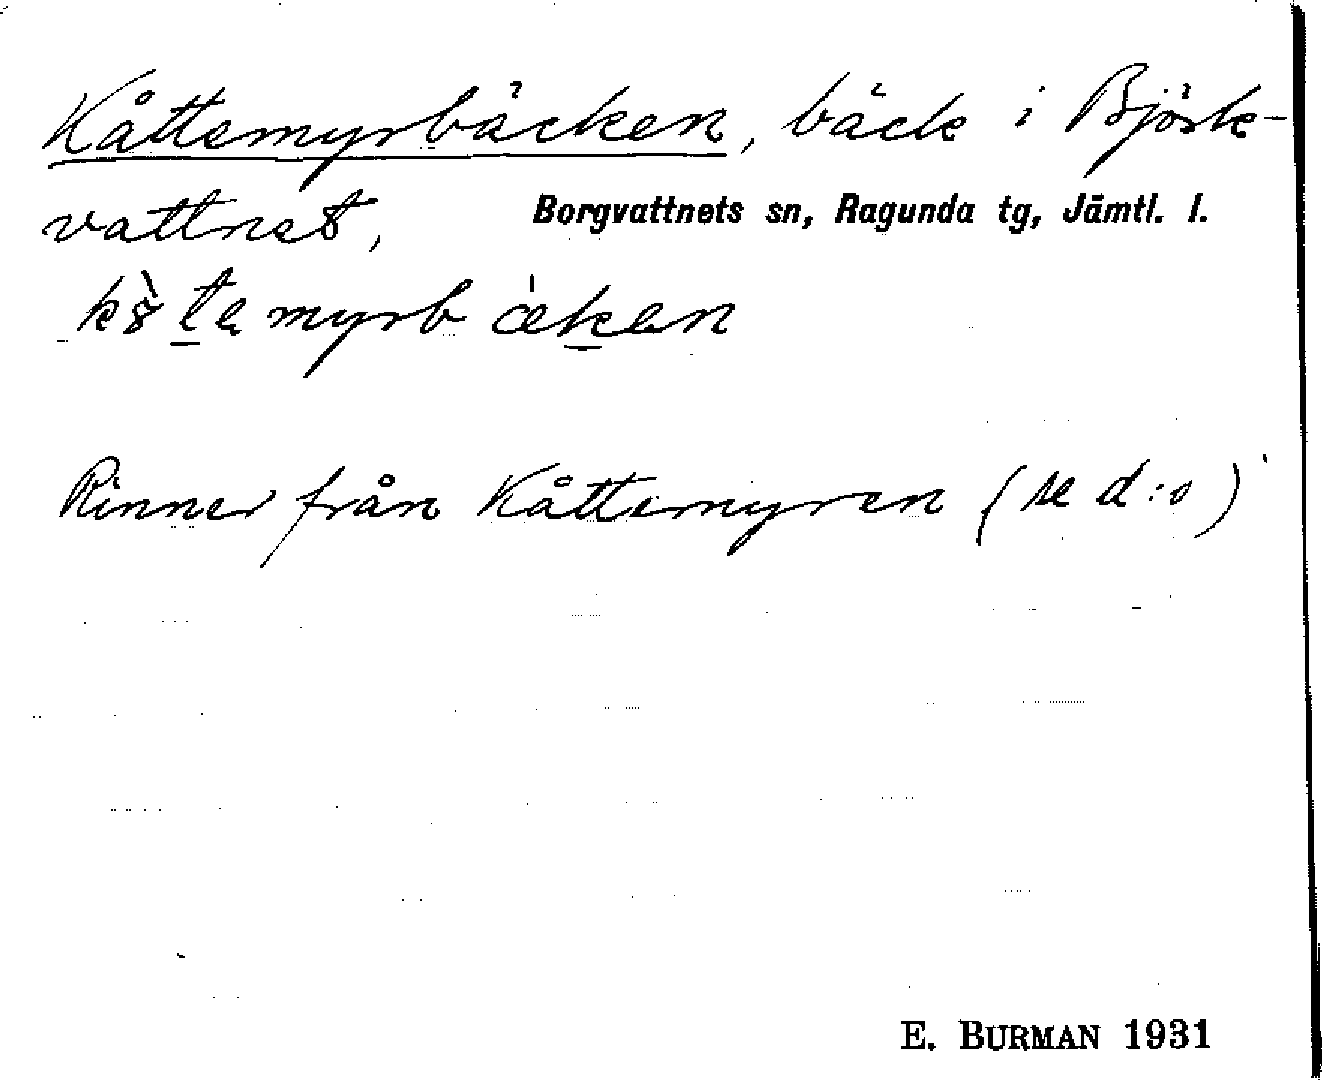 Kåttemyrbäcken, bäck i Björk-
vattnet,
Borgvattnets sn, Ragunda tg, Jämtl. l.
Rinner från Kåttemyren (se d:o)
E. BURMAN 1931